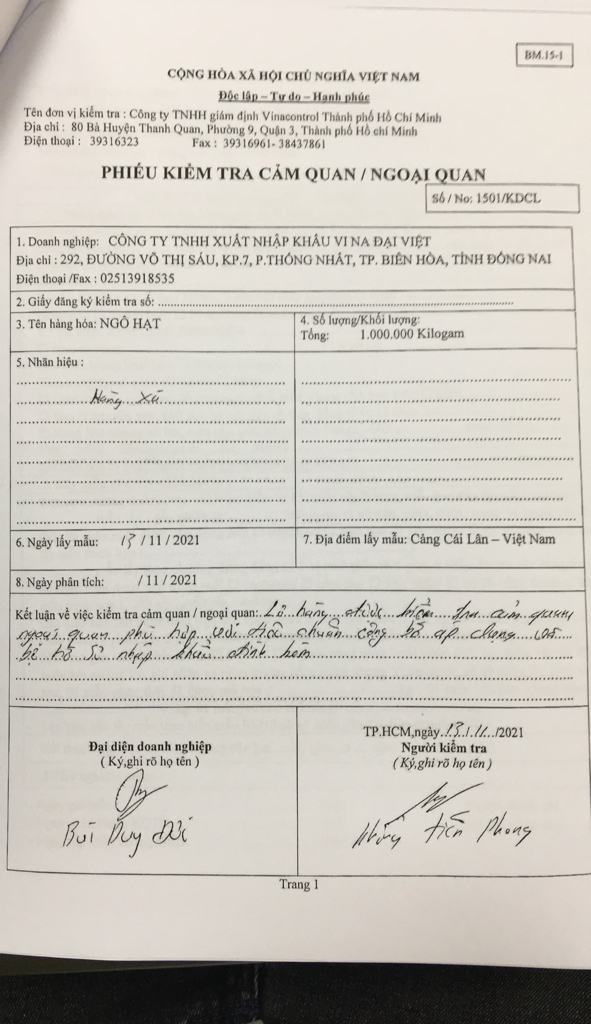 BM.15-1
CỘNG HÒA XÃ HỘI CHỦ NGHĨA VIỆT NAM
Độc lập – Tự do – Hạnh phúc
Tên đơn vị kiểm tra : Công ty TNHH giám định Vinacontrol Thành phố Hồ Chí Minh
Địa chỉ : 80 Bà Huyện Thanh Quan, Phường 9, Quận 3, Thành phố Hồ chí Minh
Điện thoại : 39316323 Fax : 39316961- 38437861
PHIẾU KIỂM TRA CẢM QUAN / NGOẠI QUAN
Số / No: 1501/KDCL
1. Doanh nghiệp: CÔNG TY TNHH XUẤT NHẬP KHẨU VI NA ĐẠI VIỆT
Địa chỉ : 292, ĐƯỜNG VÕ THỊ SÁU, KP.7, P.THỐNG NHẤT, TP. BIÊN HÒA, TỈNH ĐỒNG NAI
Điện thoại /Fax : 02513918535
2. Giấy đăng ký kiểm tra số:
3. Tên hàng hóa: NGÔ HẠT
4. Số lượng/Khối lượng:
Tổng: 1.000.000 Kilogam
5. Nhãn hiệu :
Hàng xá
6. Ngày lấy mẫu: 13 / 11 / 2021
7. Địa điểm lấy mẫu: Cảng Cái Lân – Việt Nam
8. Ngày phân tích: / 11 / 2021
Kết luận về việc kiểm tra cảm quan / ngoại quan: Lô hàng được kiểm tra cảm quan
ngoại quan phù hợp với tiêu chuẩn công bố áp dụng và
bộ hồ sơ nhập khẩu đính kèm
Đại diện doanh nghiệp
( Ký,ghi rõ họ tên )
Bùi Duy Đức
TP.HCM,ngày 13/11/2021
Người kiểm tra
( Ký,ghi rõ họ tên )
Tiến Phong
Trang 1